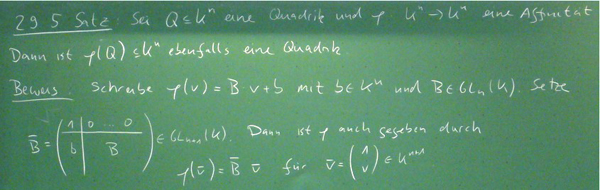 29.5 Satz: Sei Q ⊆ Kⁿ eine Quadrik und φ Kⁿ → Kⁿ eine Affinität
Dann ist φ(Q) ⊆ Kⁿ ebenfalls eine Quadrik
Beweis: Schreibe φ(v) = B·v+b mit b∈Kⁿ und B∈GLₙ(K). Setze
B̄ = (1 | 0 ... 0 ; b | B) ∈ GLₙ₊₁(K). Dann ist φ auch gegeben durch
φ(v̄) = B̄ v̄ für v̄ = (1 ; v) ∈ Kⁿ⁺¹